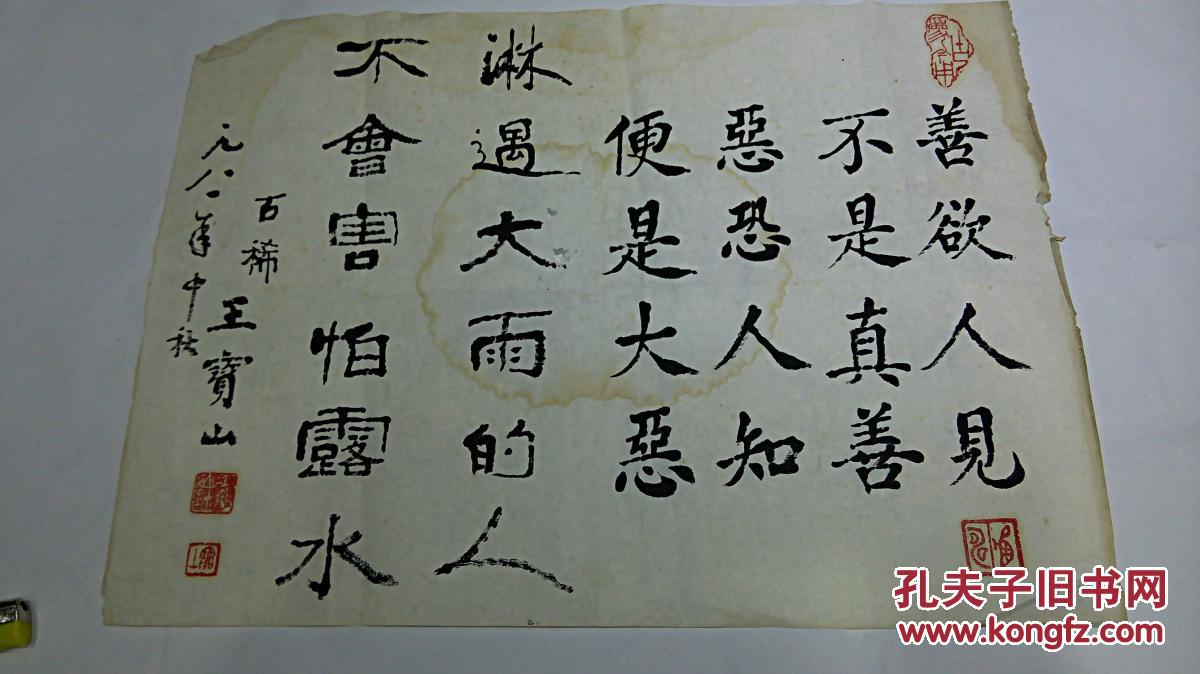 善欲人見
不是真善
惡恐人知
便是大惡
淋過大雨的人
不會害怕露水
古稀王寶山
元八二年中秋
孔夫子旧书网
www.kongfz.com